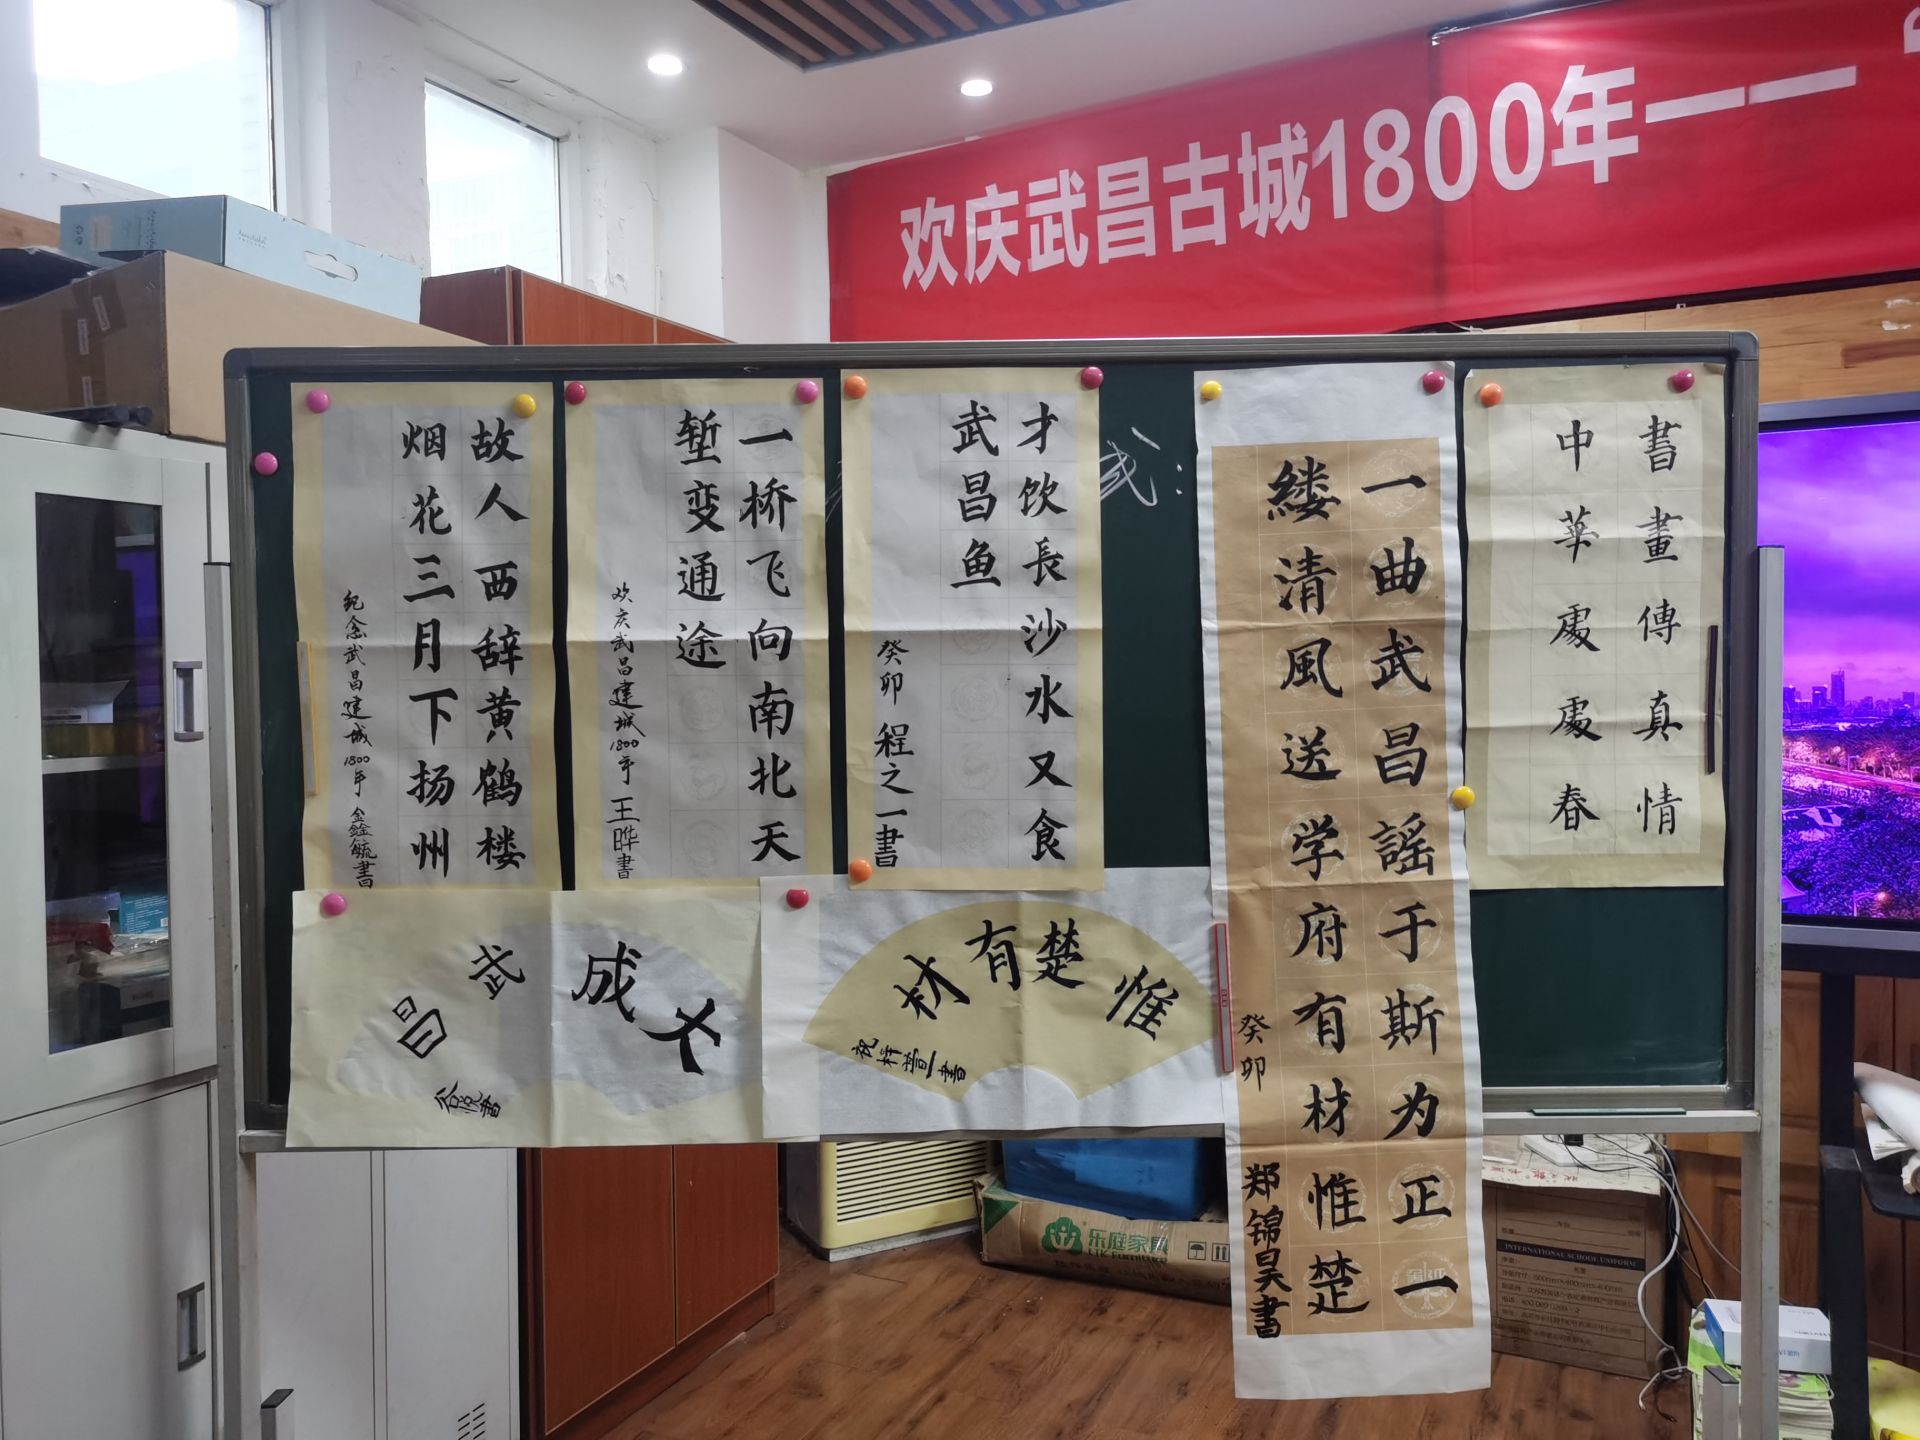 欢庆武昌古城1800年——“
書畫傳真情
中華處處春
一曲武昌謡于斯为正一
缕清風送学府有材惟楚
癸卯
郑锦昊書
才饮長沙水又食
武昌鱼
癸卯 程之一書
一桥飞向南北天
堑变通途
欢庆武昌建城1800年 王晔書
故人西辞黄鹤楼
烟花三月下扬州
纪念武昌建城1800年
惟楚有材
書
成
武昌
書
乐庭家具
INTERNATIONAL SCHOOL UNIFORM